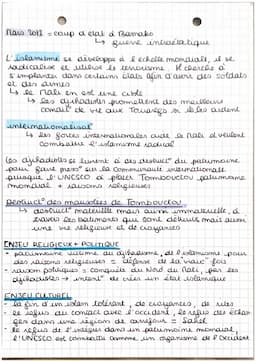 Mars 2012 = coup d'état à Bamako
↳ guerre interétatique
L'islamisme se développe à l'échelle mondiale, il se
radicalise et utilise le terrorisme. Il cherche à
s'implanter dans certains états afin d'avoir des soldats
et des armes
↳ le Mali en est une cible
↳ les djihadistes promettent des meilleures
condi° de vie aux Touaregs si ils les aident
internationalisat°
↳ les forces internationales aide le Mali et veulent
combattre l'islamisme radical
Les djihadistes se livrent à des destruct° du patrimoine
pour faire press° sur la communauté internationale
puisque l'UNESCO a placé Tombouctou patrimoine
mondial + raisons religieuses
Destruct° des mausolées de Tombouctou
↳ destruct° matérielle mais aussi immatérielle, à
travers les bâtiments qui sont détruit mais aussi
une vie religieuse et de croyances
ENJEU RELIGIEUX + POLITIQUE
- patrimoine victime du djihadisme, de l'islamisme pour
des raisons religieuses = défense de la vraie foi
- raison politiques : conquête du Nord du Mali, par les
djihadistes → intent° de créer un état islamique
ENJEU CULTUREL
- la fin d'un islam tolérant, de croyances, de rites
- le refus du contact avec l'occident, le refus des échan
ges dans une région de carrefour = Sahel
- le refus de l'idée d'un patrimoine mondial,
l'UNESCO est combattu comme un organisme de l'Occident